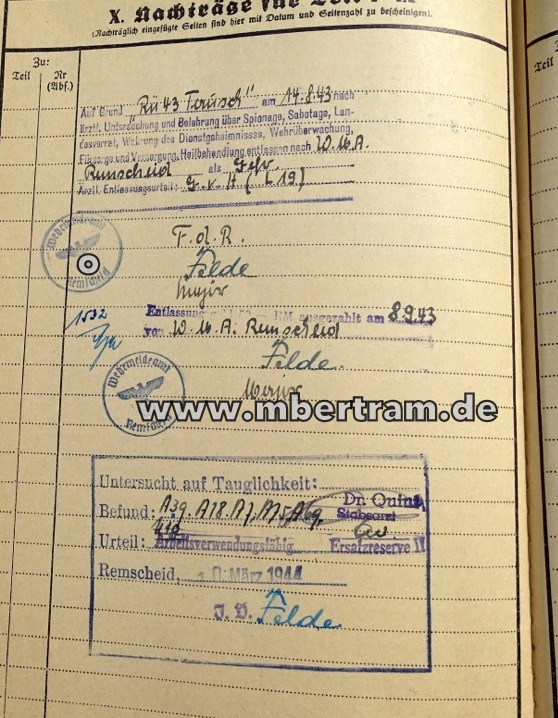 X. Nachträge für
(Nachträglich eingefügte Seiten sind hier mit Datum und Seitenzahl zu bescheinigen).
Zu:
Teil Nr (Abs.)
Teil
Auf Grund "Rü 43 Terusch" am 14.8.43 nach
ärztl. Untersuchung und Belehrung über Spionage, Sabotage, Lan-
desverrat, Wahrung des Dienstgeheimnisses, Wehrüberwachung,
Fürsorge und Versorgung, Heilbehandlung entlassen nach W.M.A.
Remscheid als Gefr.
Ärztl. Entlassungsurteil: g. v. H (L 19)
Wehrmeldeamt
Remscheid
F. d. R.
Felde
Major
1532
Entlassung RM ausgezahlt am 8.9.43
von W. M. A. Remscheid
Felde.
Major
Wehrmeldeamt
Remscheid
www.mbertram.de
Untersucht auf Tauglichkeit:
Befund: A39, A18, A7, A75, A69, Dr. Quint
Stabsarzt
Urteil: Arbeitsverwendungsfähig Ersatzreserve II
Remscheid, März 1944
I. V. Felde